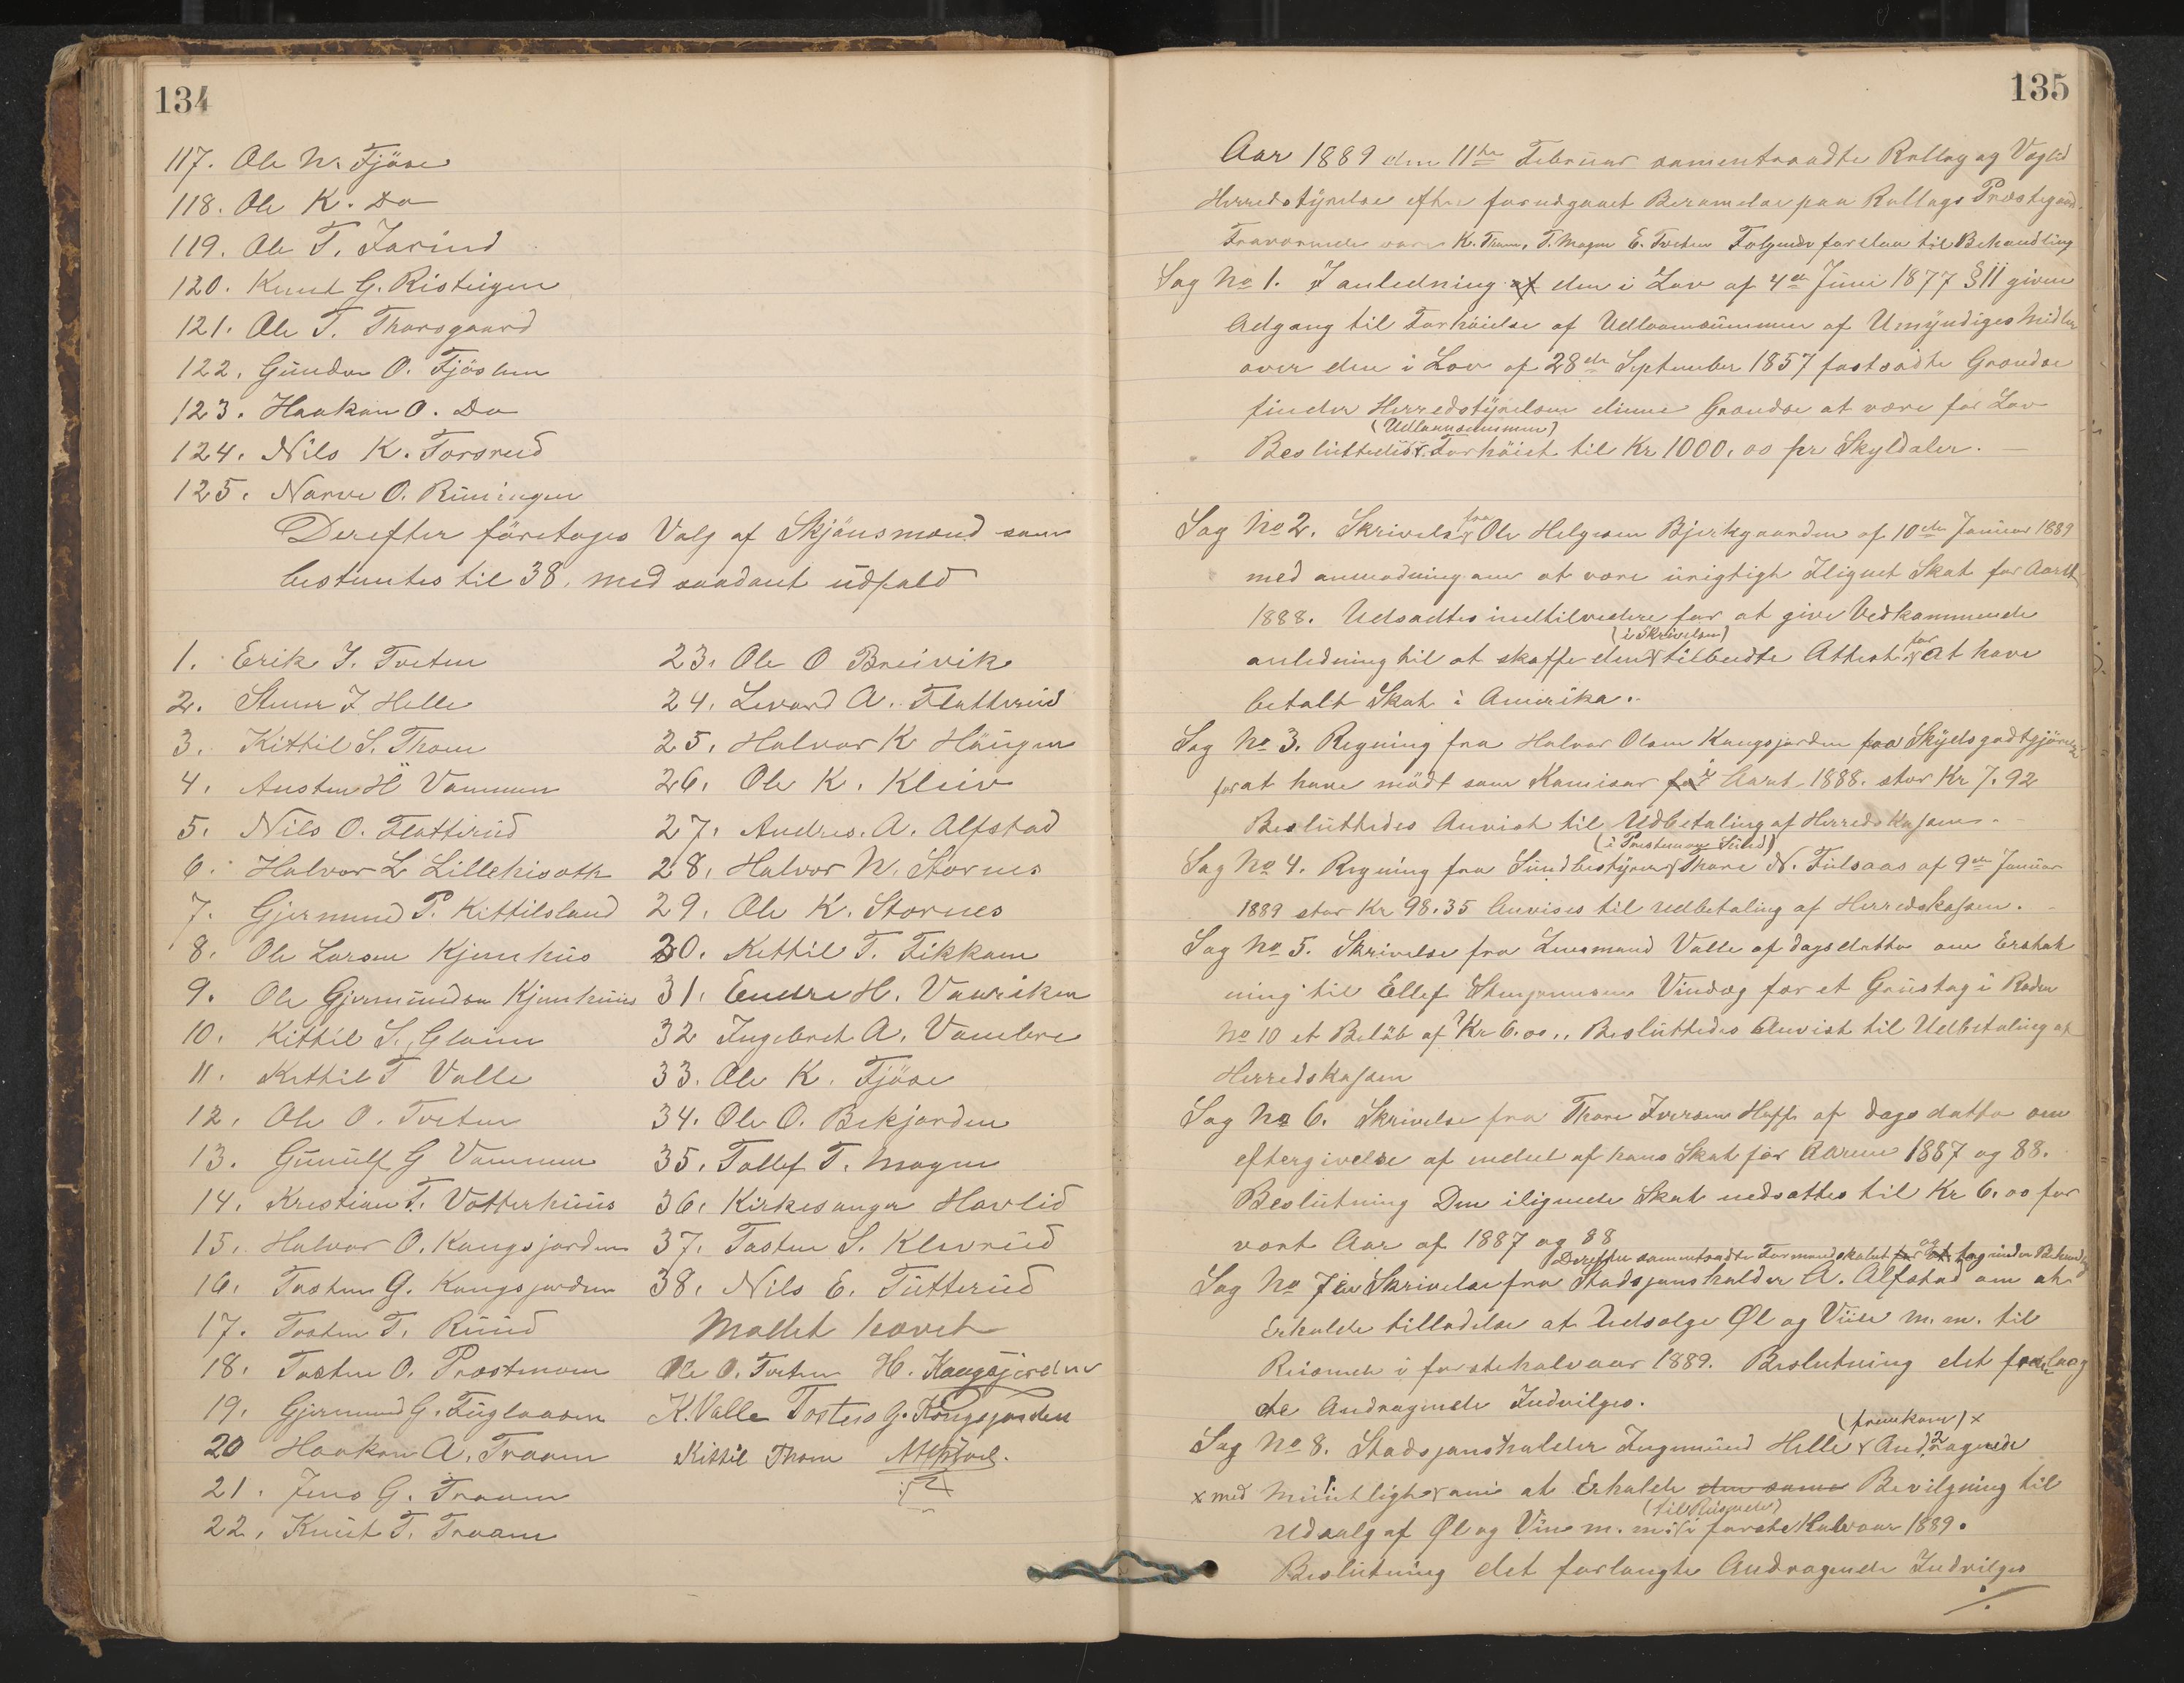 134
117. Ole N. Fjøse
118. Ole K. Do
119. Ole T. Jorind
120. Knud G. Risteigen
121. Ole T. Thorsgaard
122. Gunder O. Fjøslien
123. Haakon O. Do
124. Nils K. Forsrud
125. Narve O. Runingen
Derefter foretoges Valg af Skjønsmænd som
bestemtes til 38. med saadant udfald
1. Erik J. Tveten
2. Stener J Helle
3. Kittil S. Thom
4. Austen H Vammen
5. Nils O. Flatterud
6. Halvor L Lillehisath
7. Gjermund P. Kittilsland
8. Ole Larsen Kjemhus
9. Ole Gjermundsen Kjemhuus
10. Kittil S. Glaim
11. Kittil T Valle
12. Ole O. Tveten
13. Gunulf G Vammen
14. Kristian T. Vatterhuus
15. Halvor O. Kongsjorden
16. Tosten G. Kongsjorden
17. Tosten T. Ruud
18. Tosten O. Præstmoen
19. Gjermund G. Fuglaasen
20 Haakon A. Traaen
21. Jens G. Traaen
22. Knut T. Traaen
23. Ole O Breivik
24. Levord A. Flatterud
25. Halvor K Haugen
26. Ole K. Kleiv
27. Andres. A. Alfstad
28. Halvor N. Stornes
29. Ole K. Stornes
30. Kittil T. Fikkam
31. Endre H. Vaarviken
32 Ingebret A. Vambre
33. Ole K. Fjøse
34. Ole O. Bekjorden
35. Tollef T. Mogen
36. Kirkesanger Havlid
37. Tosten S. Klevrud
38. Nils E. Tutterud
Mødet hævet
Ole O. Tveten H. Kongsjorden
K. Valle Tosten G. Kongsjorden
Kittil Thom
135
Aar 1889 den 11te Februar sammentraadte Rollag og Veglid
Herredstyrelse efter forudgaaet Berammelse paa Rollags Præstegaard.
Fraværende vare K. Thom, T. Mogen E. Tveten Følgende forstaa til Behandling
Sag No 1. I anledning af den i Lov af 4de Juni 1877 § 11 given
Adgang til Forhøielse af Udlaansummen af Umyndiges Midler
over den i Lov af 28de September 1857 fastsatte Grændse
finder Herredstyrelsen denne Grændse at være for Lav
(Udlaanssummen)
Besluttedes Forhøiet til Kr 1000,00 pr Skyldaler.
Sag No 2. Skrivelse fra Ole Helgesen Bjerkgaarden af 10de Januar 1889
med anmodning om at være urigtigt Ilignet Skat for Aaret
1888. Udsattes indtilvedere for at give Vedkommende
(i Skrivelsen)
anledning til at skaffe den tilbudte Attest for At have
betalt Skat i Amerika.
Sag No 3. Regning fra Halvor Olsen Kongsjorden for Skydsgodtgjørelse
for at have mødt som Komisær i Aaret 1888. stor Kr 7.92
Besluttedes Anvist til Udbetaling af Herredskassen.
Sag No 4. Regning fra Sundbestyrer Thore N. Fulsaas af 9de Januar
1889 stor Kr 98.35 Anvises til Udbetaling af Herredskassen.
Sag No 5. Skrivelse fra Lensmand Valle af dagsdatto om Erstat
ning til Ellef Vindeg for et Grustag i Roden
No 10 et Beløb af Kr 6.00,. Besluttedes Anvist til Udbetaling af
Herredskassen
Sag No 6. Skrivelse fra Thore Iversen Hoff af dags datto om
eftergivelse af endeel af hans Skat for Aarene 1887 og 88.
Beslutning Den ilignede Skat nedsattes til Kr 6.00 for
vært Aar af 1887 og 88
Derefter sammentraadte Formandskabet for og at tog under Behandling
Sag No 7 en Skrivelse fra Skydsjænsholder A. Alfstad om at
Erholde tilladelse at Udsælge Øl og Viin m. m. til
Reisende i førstehalvaar 1889. Beslutning det forelaag
de Andragende Indvilges.
(fremkom) x
Sag No 8. Skydsjænsholder Ingemund Helle Andragende
x med Mundtligh om at Erholde den samme Bevilgning til
(til Reisende)
Udsalg af Øl og Vin m. m. i første Halvaar 1889.
Beslutning det forlangte Andragende Indvilges